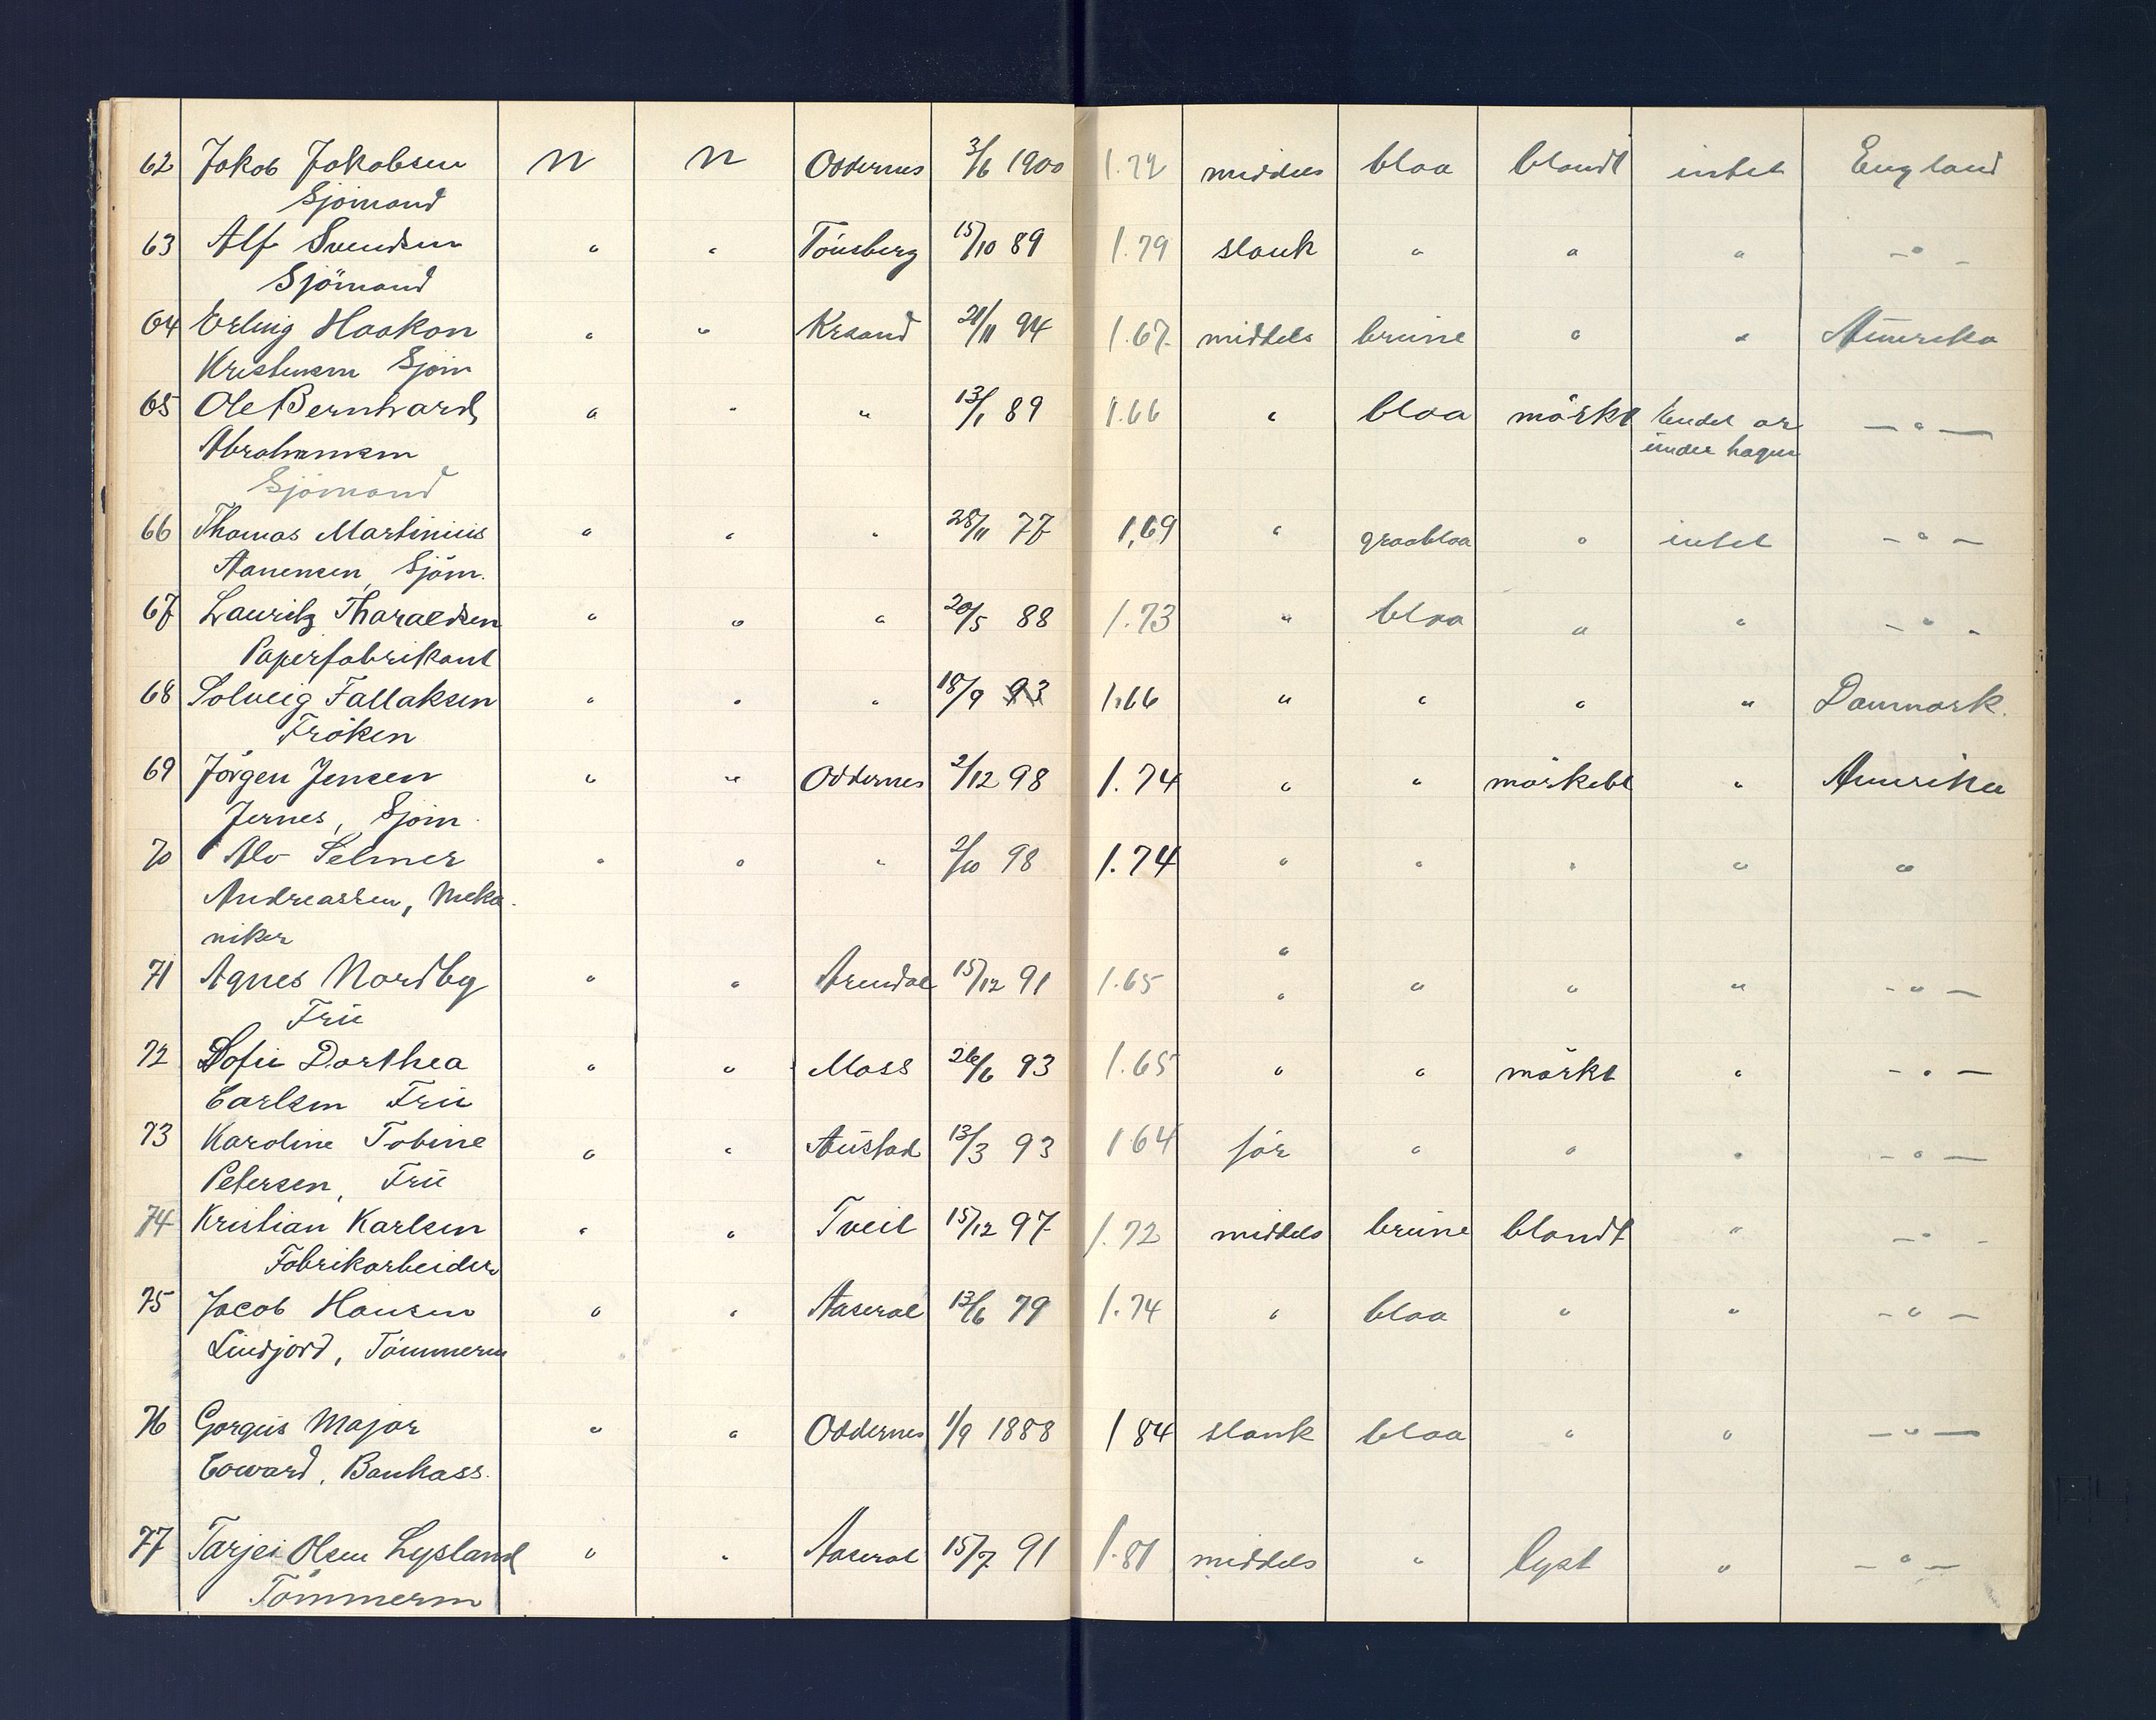 62 Jakob Jakobsen n n Oddernes 3/6 1900 1.72 middels blaa blondt intet England
Sjömand
63 Alf Svendsen " " Tönsberg 15/10 89 1.79 slank " " " - " -
Sjömand
64 Erling Haakon " " Krsand 21/11 94 1.67 middels brune " " Amerika
Kristensen Sjöm
65 Ole Bernhard " " " 13/1 89 1.66 " blaa mörkt endel ar - " -
Abrahamsen under hagen
Sjömand
66 Thomas Martinius " " " 28/11 77 1,69 " graablaa " intet - " -
Aanensen, Sjöm.
67 Lauritz Tharaldsen " " " 20/5 88 1.73 " blaa " " - " -
Paperfabrikant
68 Solveig Tallaksen " " " 18/9 93 1.66 " " " " Danmark.
Fröken
69 Jörgen Jensen " " Oddernes 2/12 98 1.74 " " mörkebl " Amerika
Jernes, Sjöm
70 Alv Selmer " " " 2/10 98 1.74 " " " " "
Andreassen, Meka-
niker "
71 Agnes Nordby " " Arendal 15/12 91 1.65 " " " " - " -
Frü
72 Sofie Dorthea " " Moss 26/6 93 1.65 " " mörkt " - " -
Carlsen Frü
73 Karoline Tobine " " Austad 13/3 93 1.64 för " " " - " -
Petersen, Frü
74 Kristian Karlsen " " Tveit 15/12 97 1.72 middels brune blondt " - " -
Fabrikarbeider
75 Jacob Hansen " " Aaseral 13/6 79 1.74 " blaa " " - " -
Lindjord, Tömmerm
76 Gorgus Major " " Oddernes 1/9 1888 1 84 slank blaa " " - " -
Coward, Bankass.
77 Tarjei Olsen Lysland " " Aaseral 15/7 91 1.81 middels " lyst " - " -
Tömmerm